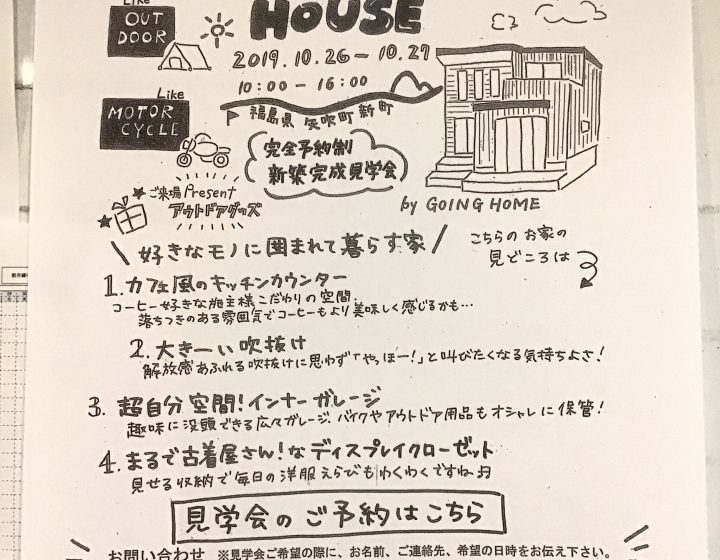 Like
OUT
DOOR
HOUSE
2019.10.26－10.27
10:00－16:00
Like
MOTOR
CYCLE
福島県 矢吹町 新町
完全予約制
新築完成見学会
ご来場Present
アウトドアグッズ
by GOING HOME
好きなモノに囲まれて暮らす家
こちらの お家の
見どころは
1.カフェ風のキッチンカウンター
コーヒー好きな施主様こだわりの空間..
落ちつきのある雰囲気でコーヒーもより美味しく感じるかも…
2.大きーい吹抜け
解放感あふれる吹抜けに思わず「やっほー!」と叫びたくなる気持ちよさ!
3. 超自分空間!インナーガレージ
趣味に没頭できる広々ガレージ.バイクやアウトドア用品もオシャレに保管!
4.まるで古着屋さん!なディスプレイクローゼット
見せる収納で毎日の洋服えらびもわくわくですね♫
見学会のご予約はこちら
お問い合わせ ※見学会ご希望の際に、お名前、ご連絡先、希望の日時をお伝え下さい。